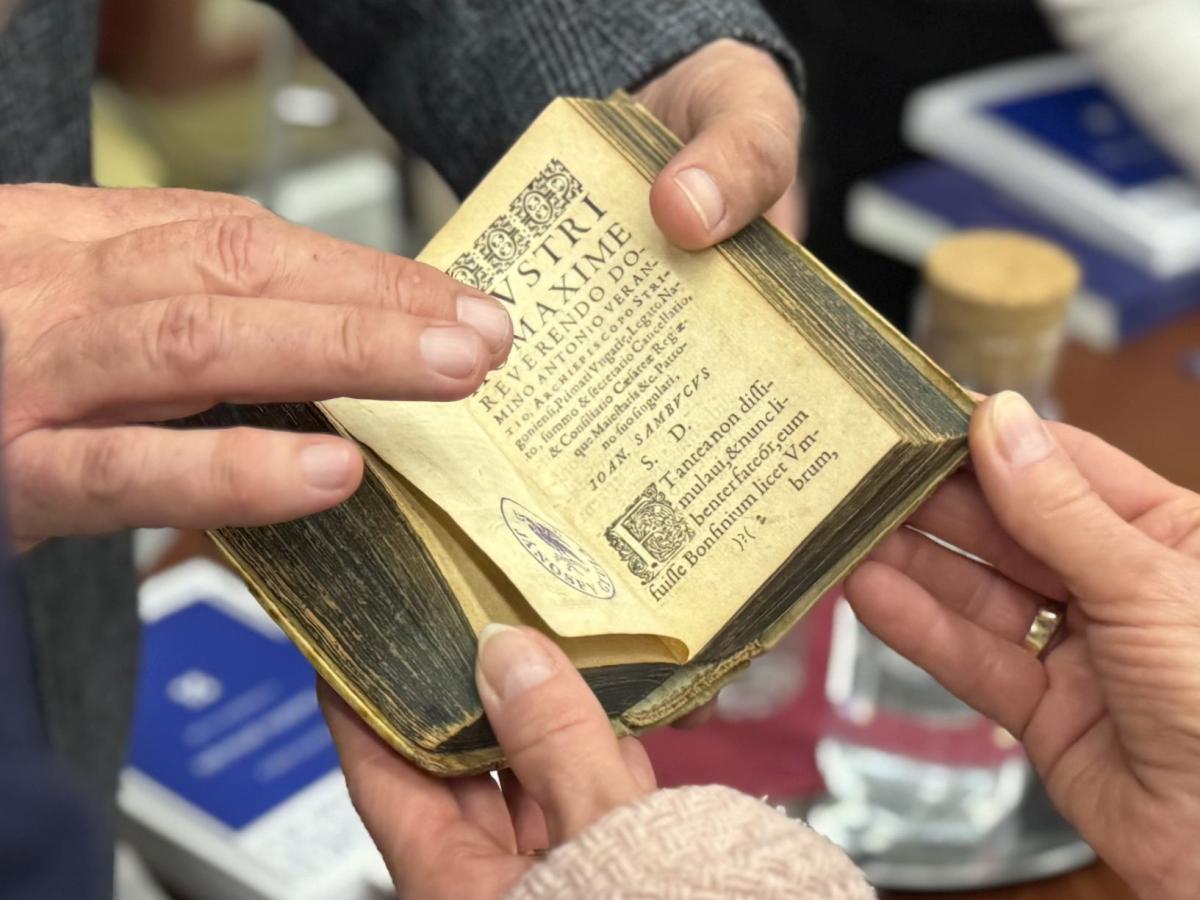 VSTRI
MAXIME
REVERENDO DO-
MINO ANTONIO VERAN-
TIO, ARCHIEPISCOPO STRI-
goniensi, Primati Vngarię, Legato Na-
to, summo & secretario Cancellario,
& Consiliario Cæsareæ Regiæ-
que Maiestatis &c. Patro-
no suo singulari,
IOAN. SAMBVCVS
S. D.
ET antea non dissi-
mulaui, & nunc li-
benter fateór, eum
fuisse Bonfinium licet Vm-
brum,
):( 2